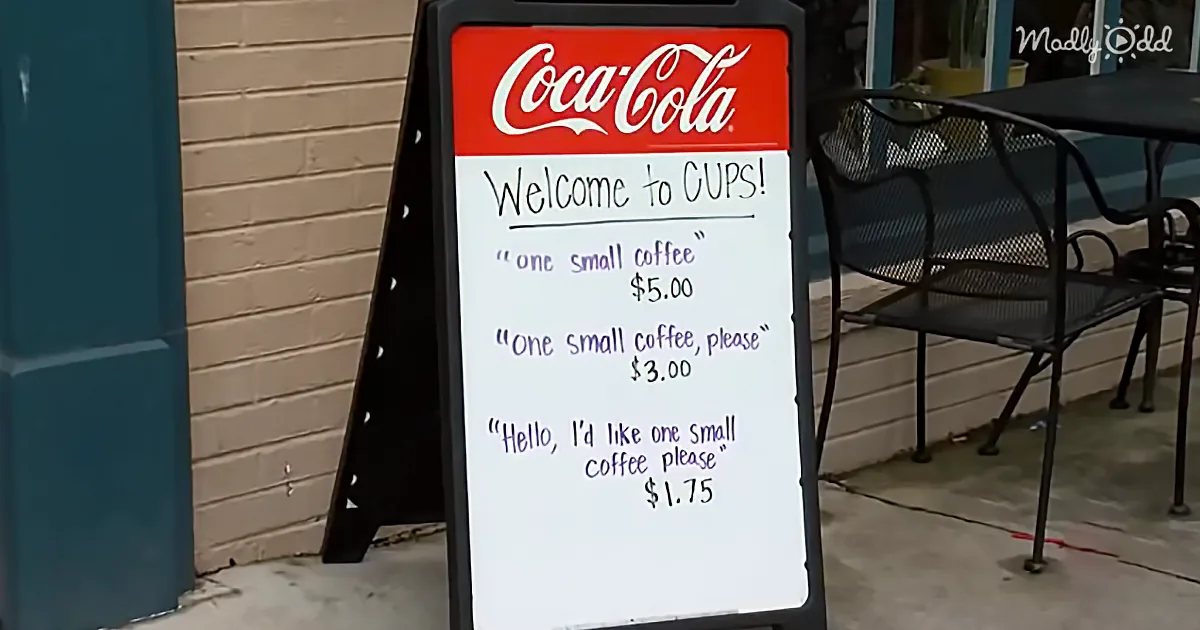 Madly Odd
Coca-Cola
Welcome to CUPS!
"one small coffee"
$5.00
"One small coffee, please"
$3.00
"Hello, I'd like one small
coffee please"
$1.75